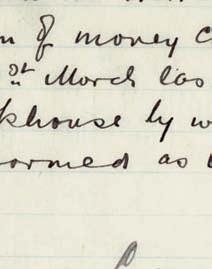 of money
March las
khouse by w
ormed as